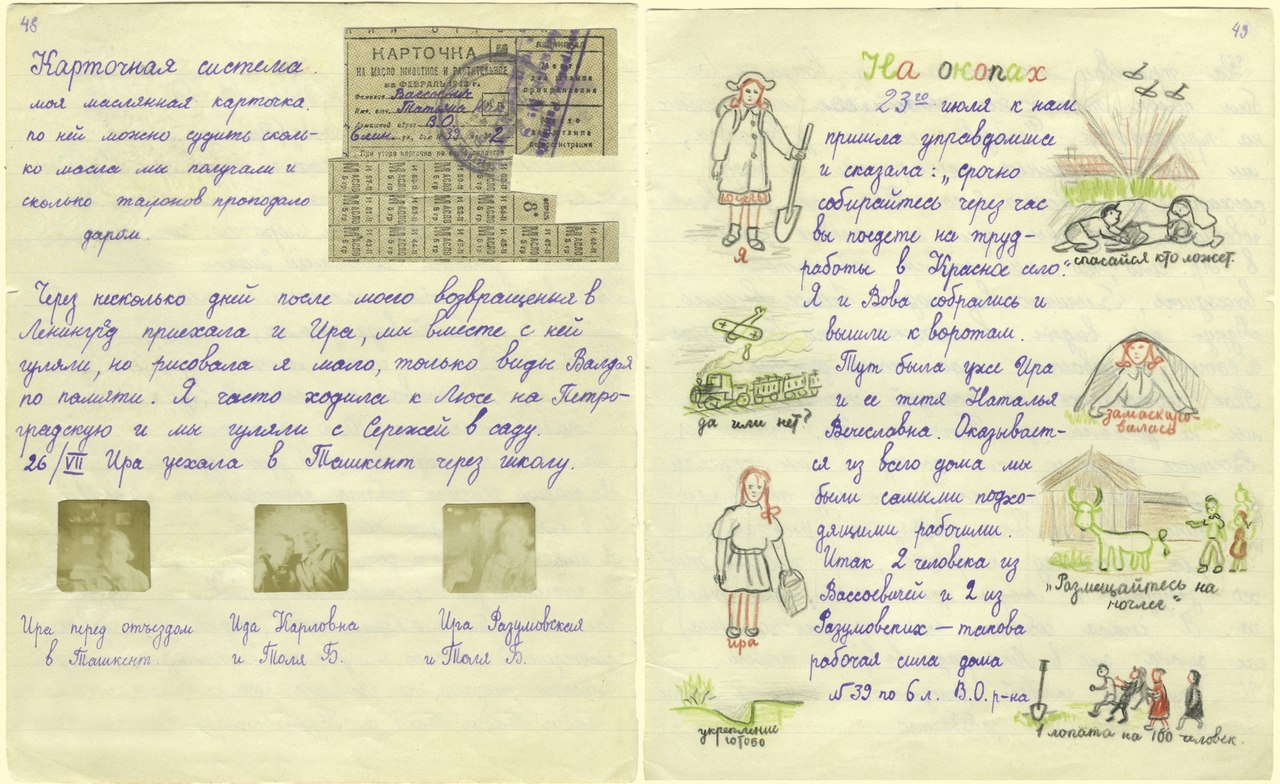 48
Карточная система.
моя маслянная карточка.
по ней можно судить сколь-
ко масла мы получали и
сколько талонов пропадало
даром.
КАРТОЧКА
НА МАСЛО ЖИВОТНОЕ И РАСТИТЕЛЬНОЕ
НА ФЕВРАЛЬ
Вассоевич
Татьяна
В.О.
6 лин. 39 2
При утере карточка не
Через несколько дней после моего возвращения в
Ленинград приехала и Ира, мы вместе с ней
гуляли, но рисовала я мало, только виды Валдая
по памяти. Я часто ходила к Люсе на Петро-
градскую и мы гуляли с Сережей в саду.
26/VII Ира уехала в Ташкент через школу.
Ира перед отъездом
в Ташкент
Ида Карловна
и Толя Б.
Ира Разумовская
и Толя Б.
49
На окопах
23го июля к нам
пришла управдомша
и сказала: „срочно
собирайтесь через час
вы поедете на труд-
работы в Красное село."
Я и Вова собрались и
вышли к воротам.
Тут была уже Ира
и ее тетя Наталья
Вечеславна. Оказывает-
ся из всего дома мы
были самыми подхо-
дящими рабочими.
Итак 2 человека из
Вассоевичей и 2 из
Разумовских — такова
рабочая сила дома
№39 по 6 л. В.О. р-на
я
да или нет?
ира
укрепление
готово
спасайся кто может.
замаскиро
валась
„Размещайтесь на
ночлег."
1 лопата на 100 человек.